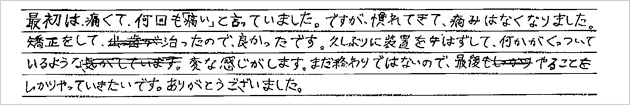 最初は、痛くて、何回も「痛い」と言っていました。ですが、慣れてきて、痛みはなくなりました。
矯正をして、出歯が治ったので、良かったです。久しぶりに装置をはずして、何かがくっついて
いるような感がしています。変な感じがします。まだ終わりではないので、最後もしっかりやることを
しっかりやっていきたいです。ありがとうございました。